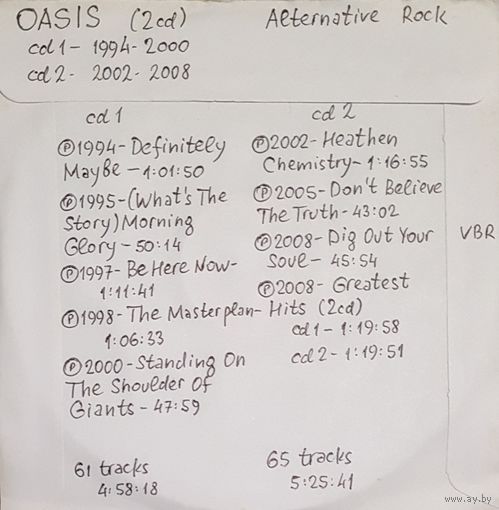 OASIS (2cd) Alternative Rock
cd1 - 1994-2000
cd2 - 2002-2008
cd 1
Ⓟ1994-Definitely
Maybe - 1:01:50
Ⓟ1995-(What's The
Story) Morning
Glory - 50:14
Ⓟ1997-Be Here Now-
1:11:41
Ⓟ1998-The Masterplan-
1:06:33
Ⓟ2000-Standing On
The Shoulder Of
Giants - 47:59
61 tracks
4:58:18
cd 2
Ⓟ2002-Heathen
Chemistry- 1:16:55
Ⓟ2005-Don't Believe
The Truth- 43:02
Ⓟ2008-Dig Out Your
Soul - 45:54
Ⓟ2008-Greatest
Hits (2cd)
cd1 - 1:19:58
cd2 - 1:19:51
65 tracks
5:25:41
VBR
www.ay.by